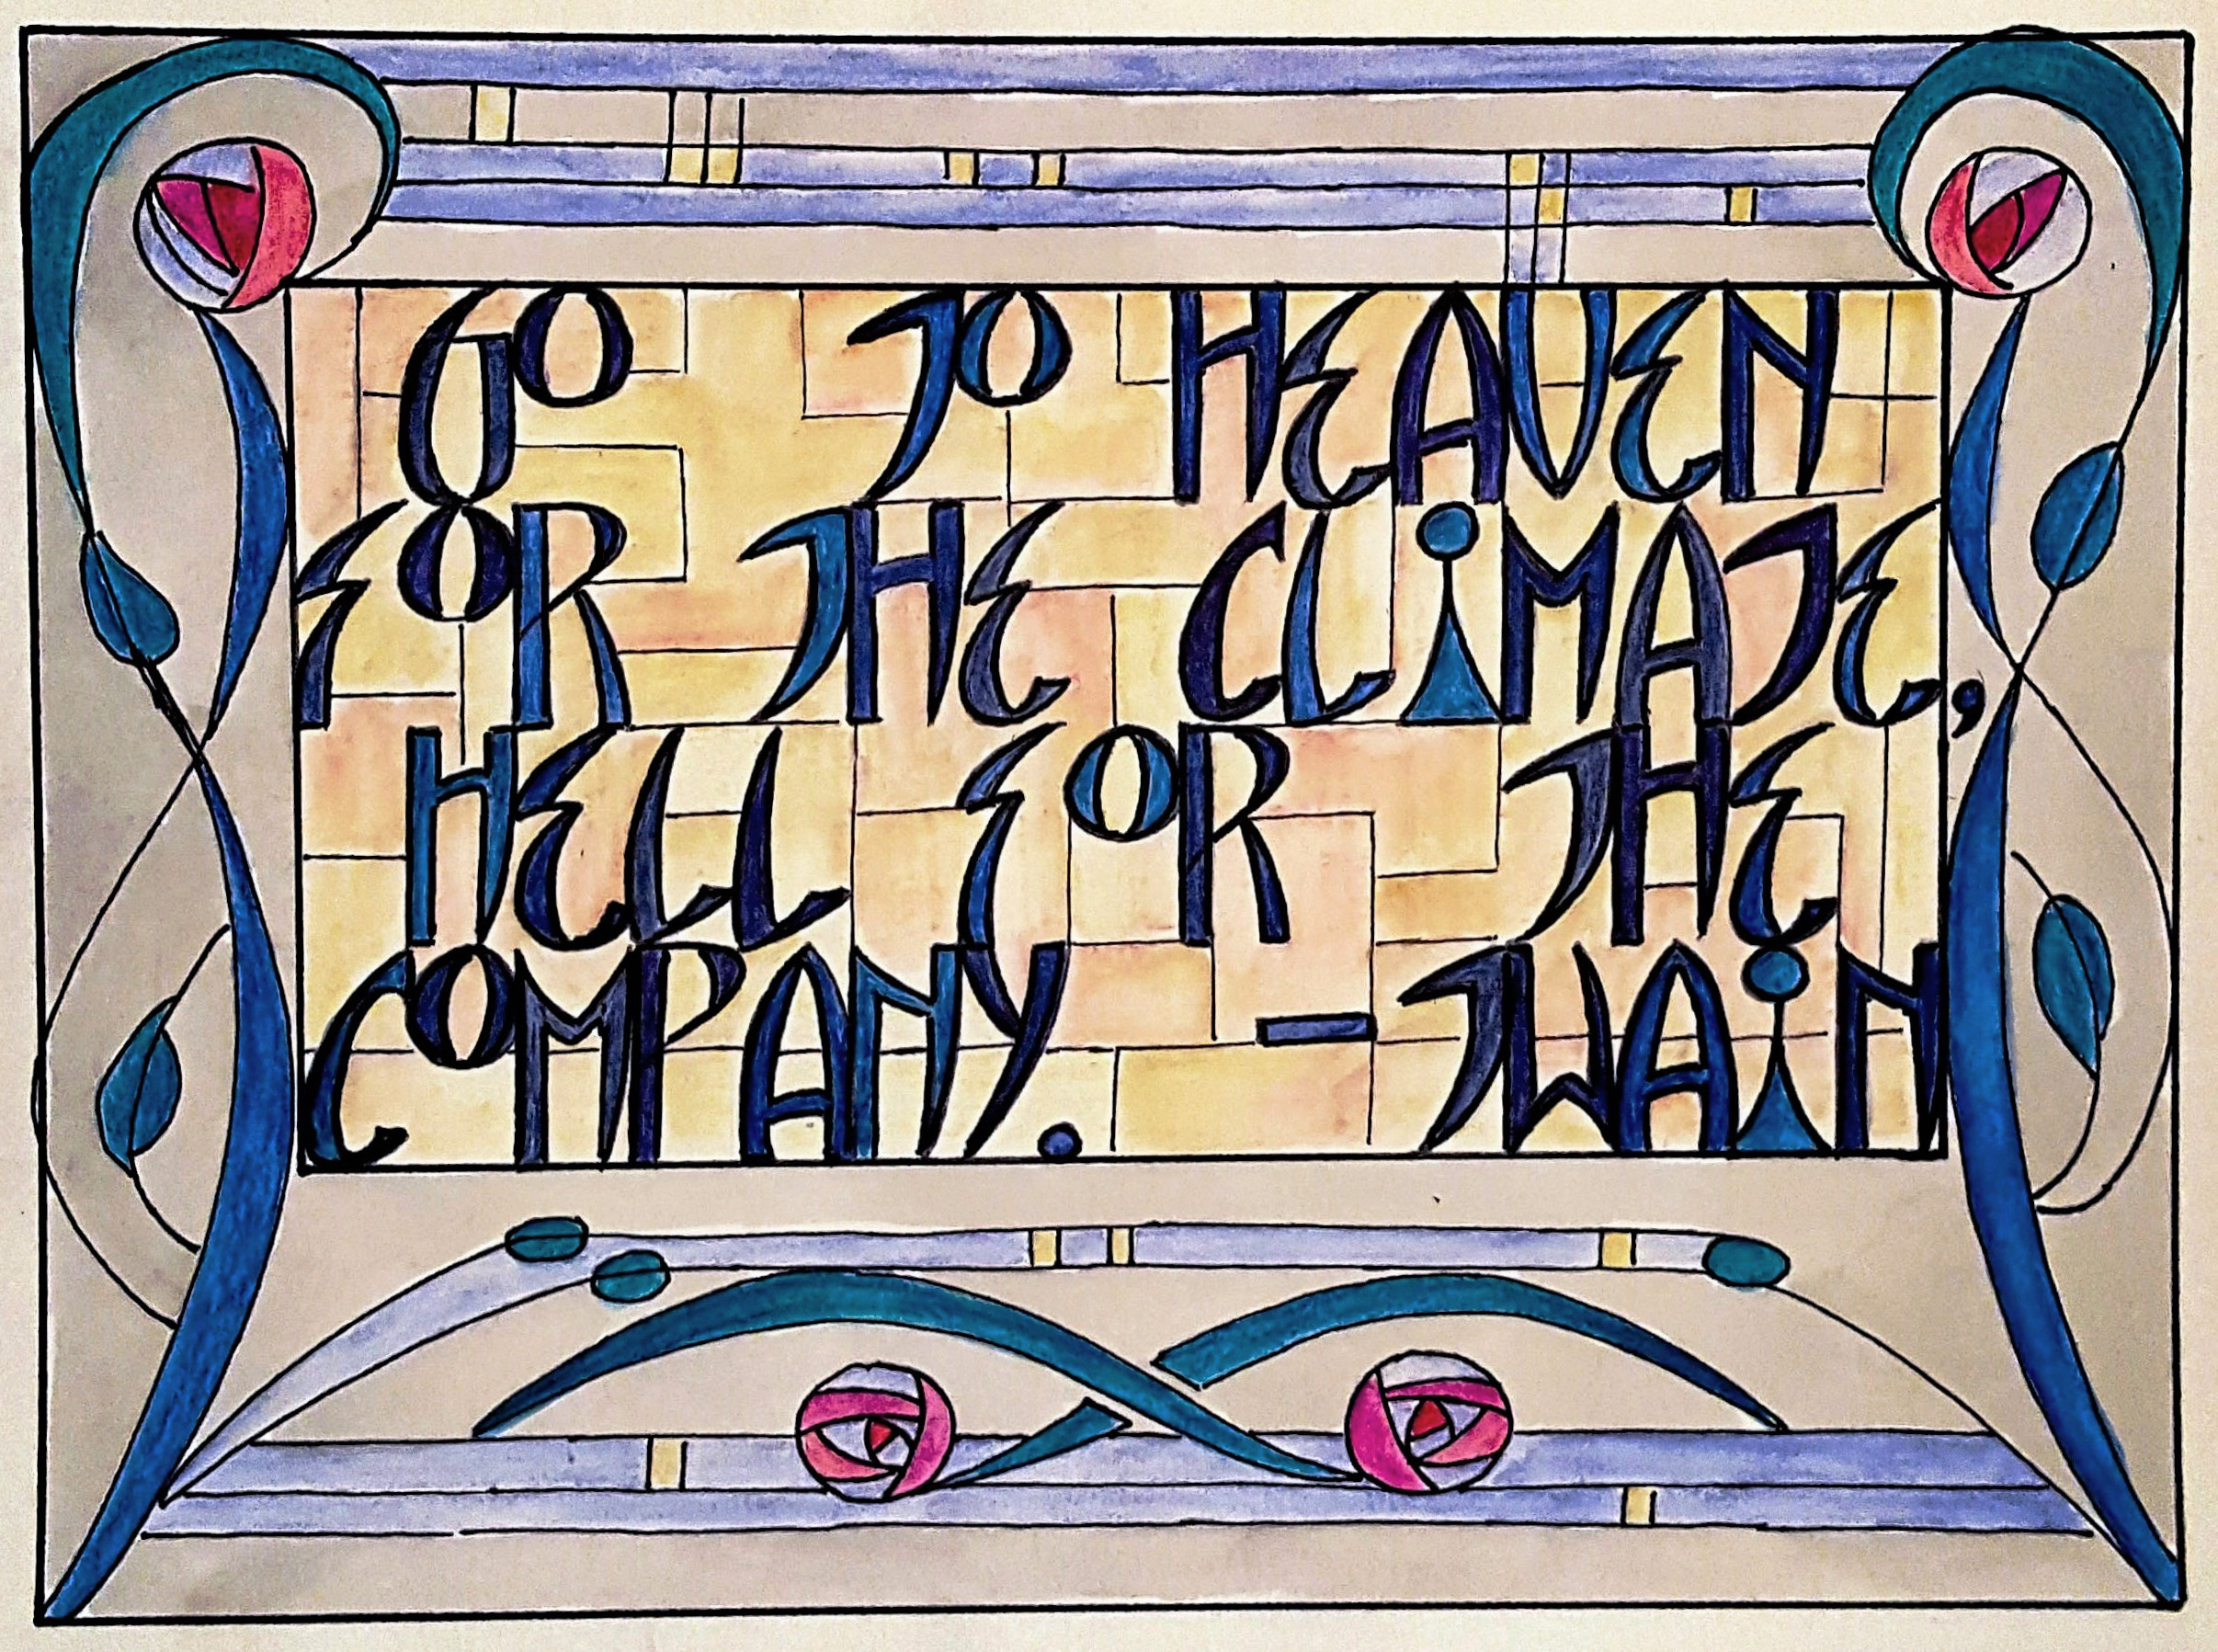 GO TO HEAVEN
FOR THE CLiMATE,
HELL FOR THE
COMPANY. – TWAiN